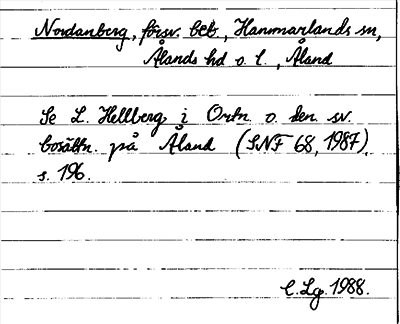 Nordanberg, försv. beb., Hammarlands sn,
Ålands hd o. l., Åland
Se L. Hellberg i Ortn. o. den sv.
bosättn. på Åland (SNF 68, 1987),
s. 196.
C. Lg. 1988.